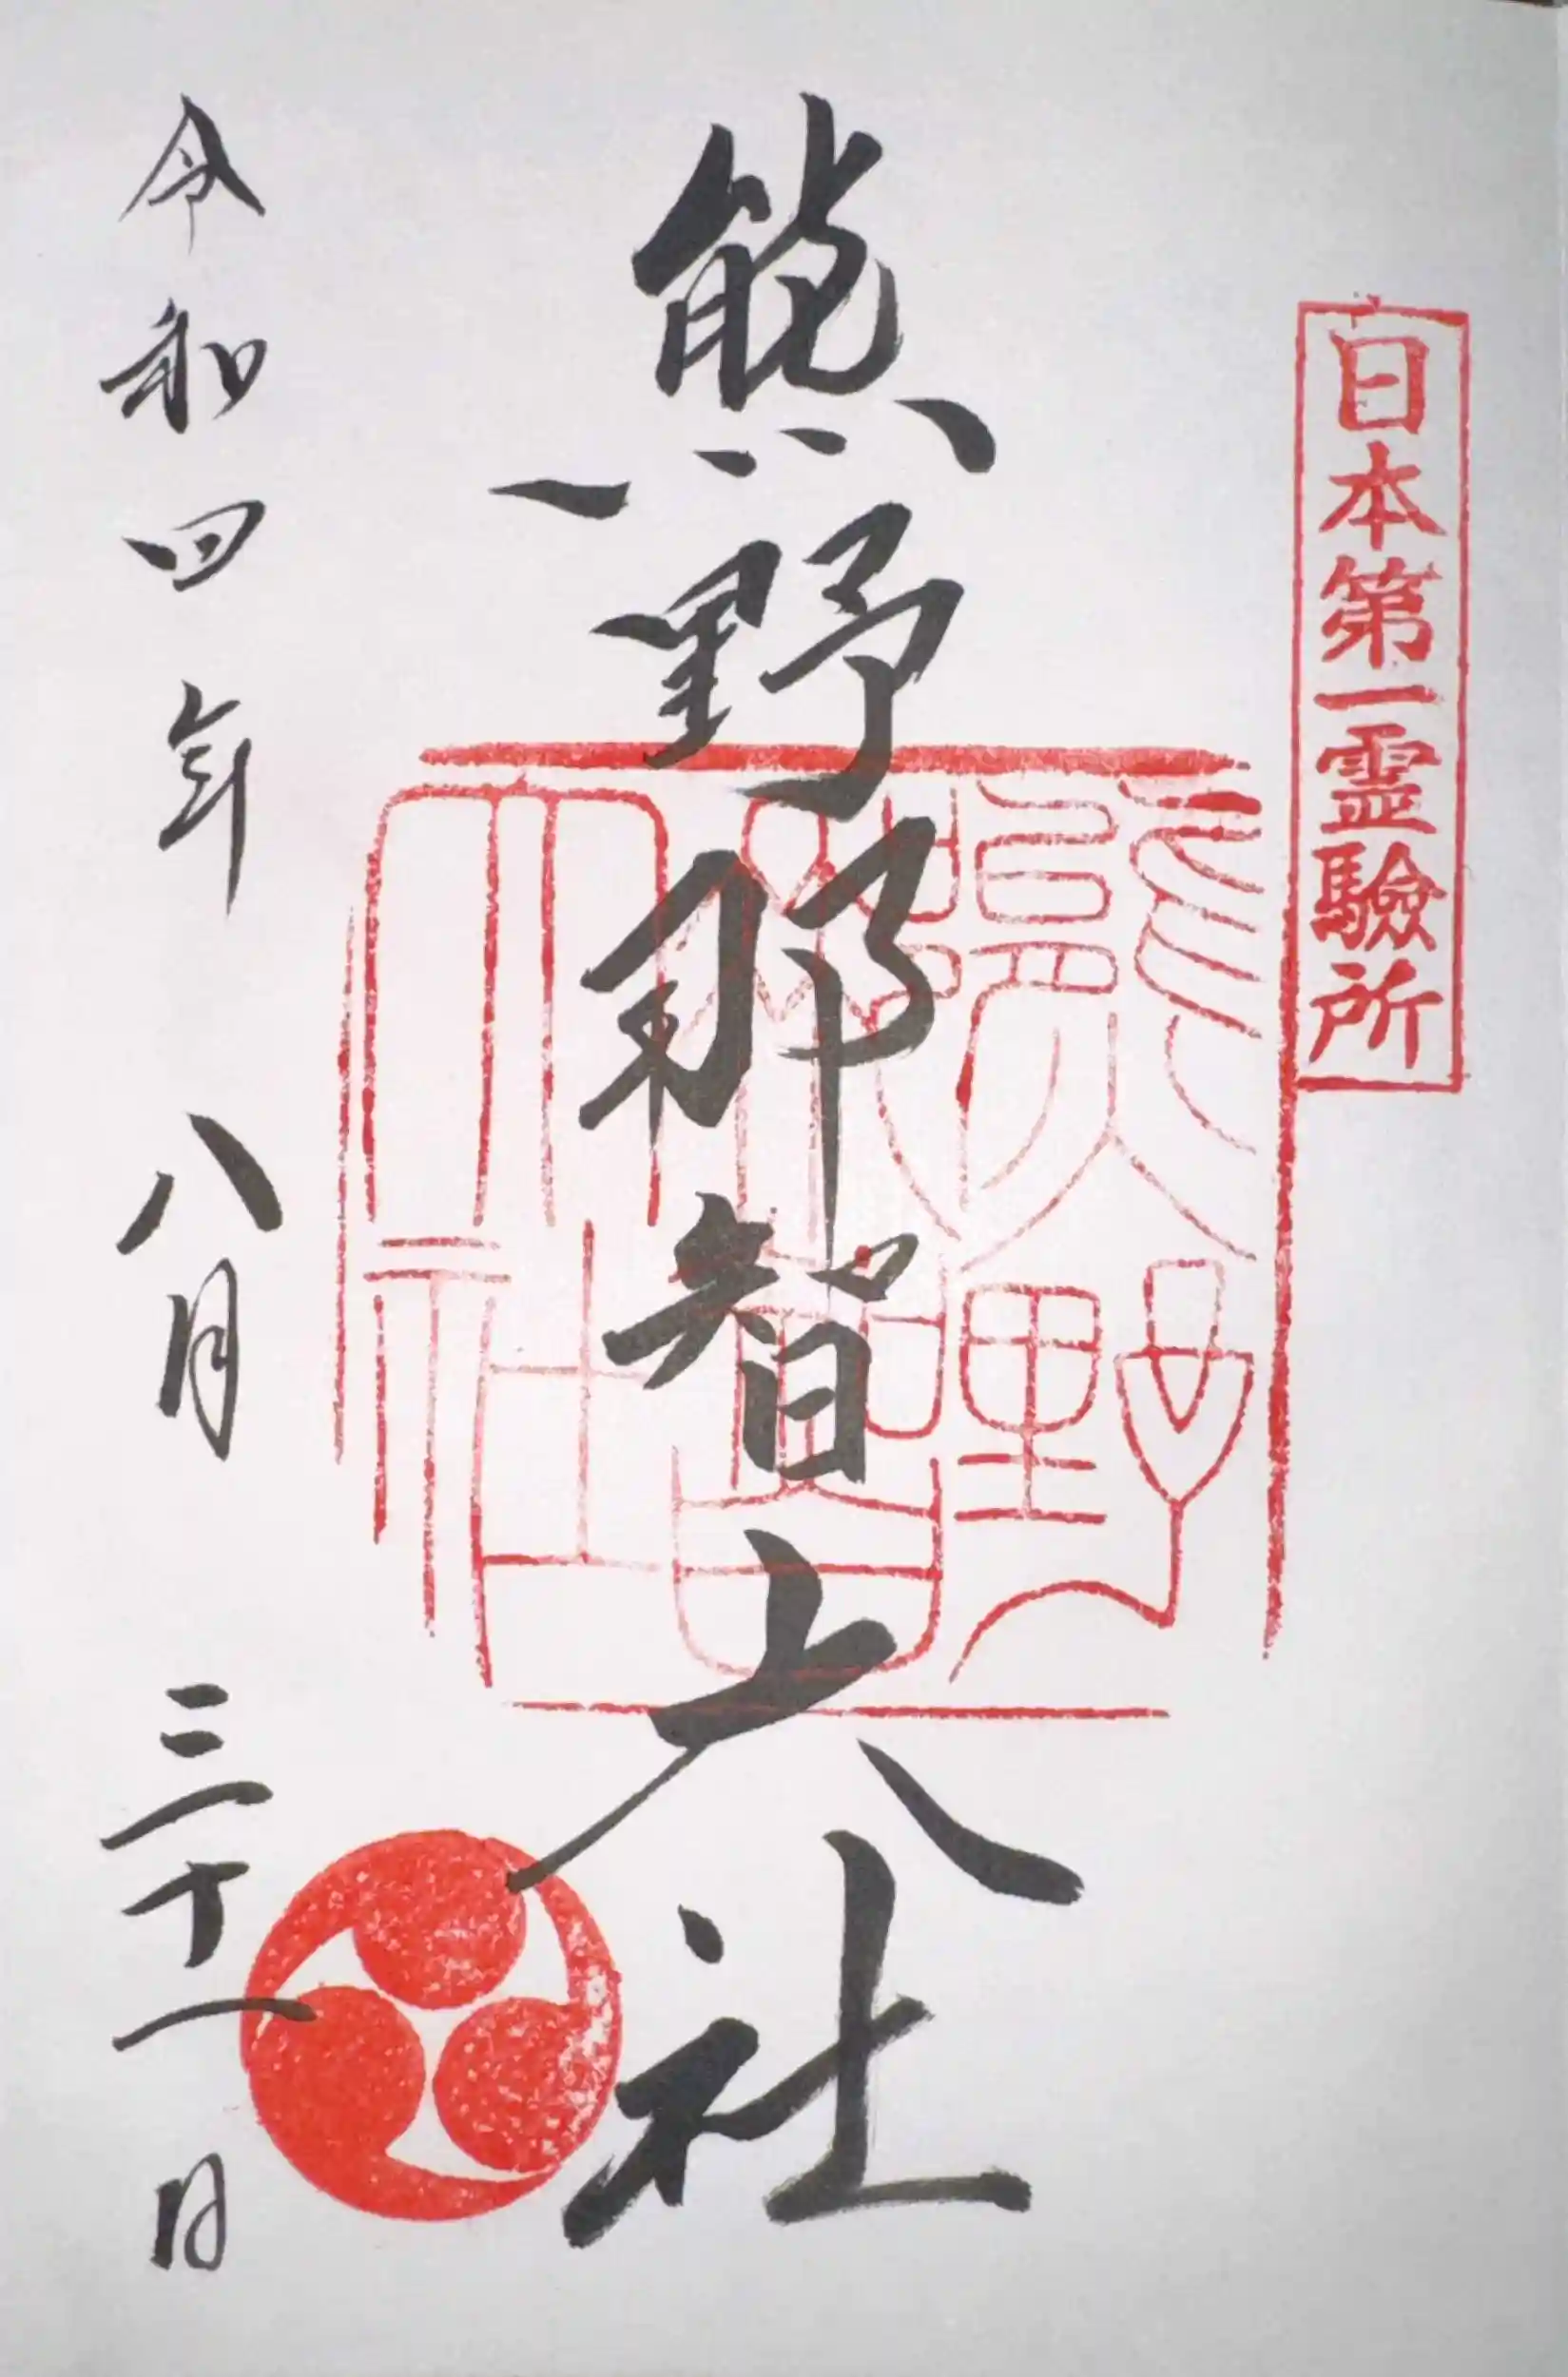 日本第一霊驗所
熊野那智大社
熊野那智大社
令和四年八月三十一日